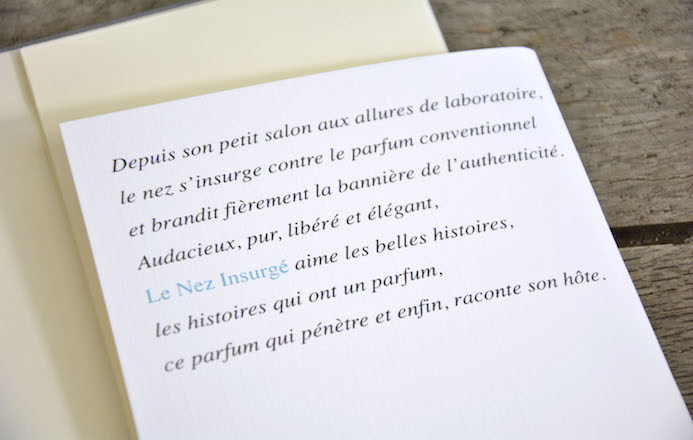 Depuis son petit salon aux allures de laboratoire,
le nez s'insurge contre le parfum conventionnel
et brandit fièrement la bannière de l'authenticité.
Audacieux, pur, libéré et élégant,
Le Nez Insurgé aime les belles histoires,
les histoires qui ont un parfum,
ce parfum qui pénètre et enfin, raconte son hôte.